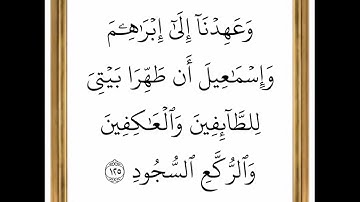 وَعَهِدْنَآ إِلَىٰٓ إِبْرَٰهِـۧمَ
وَإِسْمَـٰعِيلَ أَن طَهِّرَا بَيْتِىَ
لِلطَّآئِفِينَ وَٱلْعَـٰكِفِينَ
وَٱلرُّكَّعِ ٱلسُّجُودِ ١٢٥